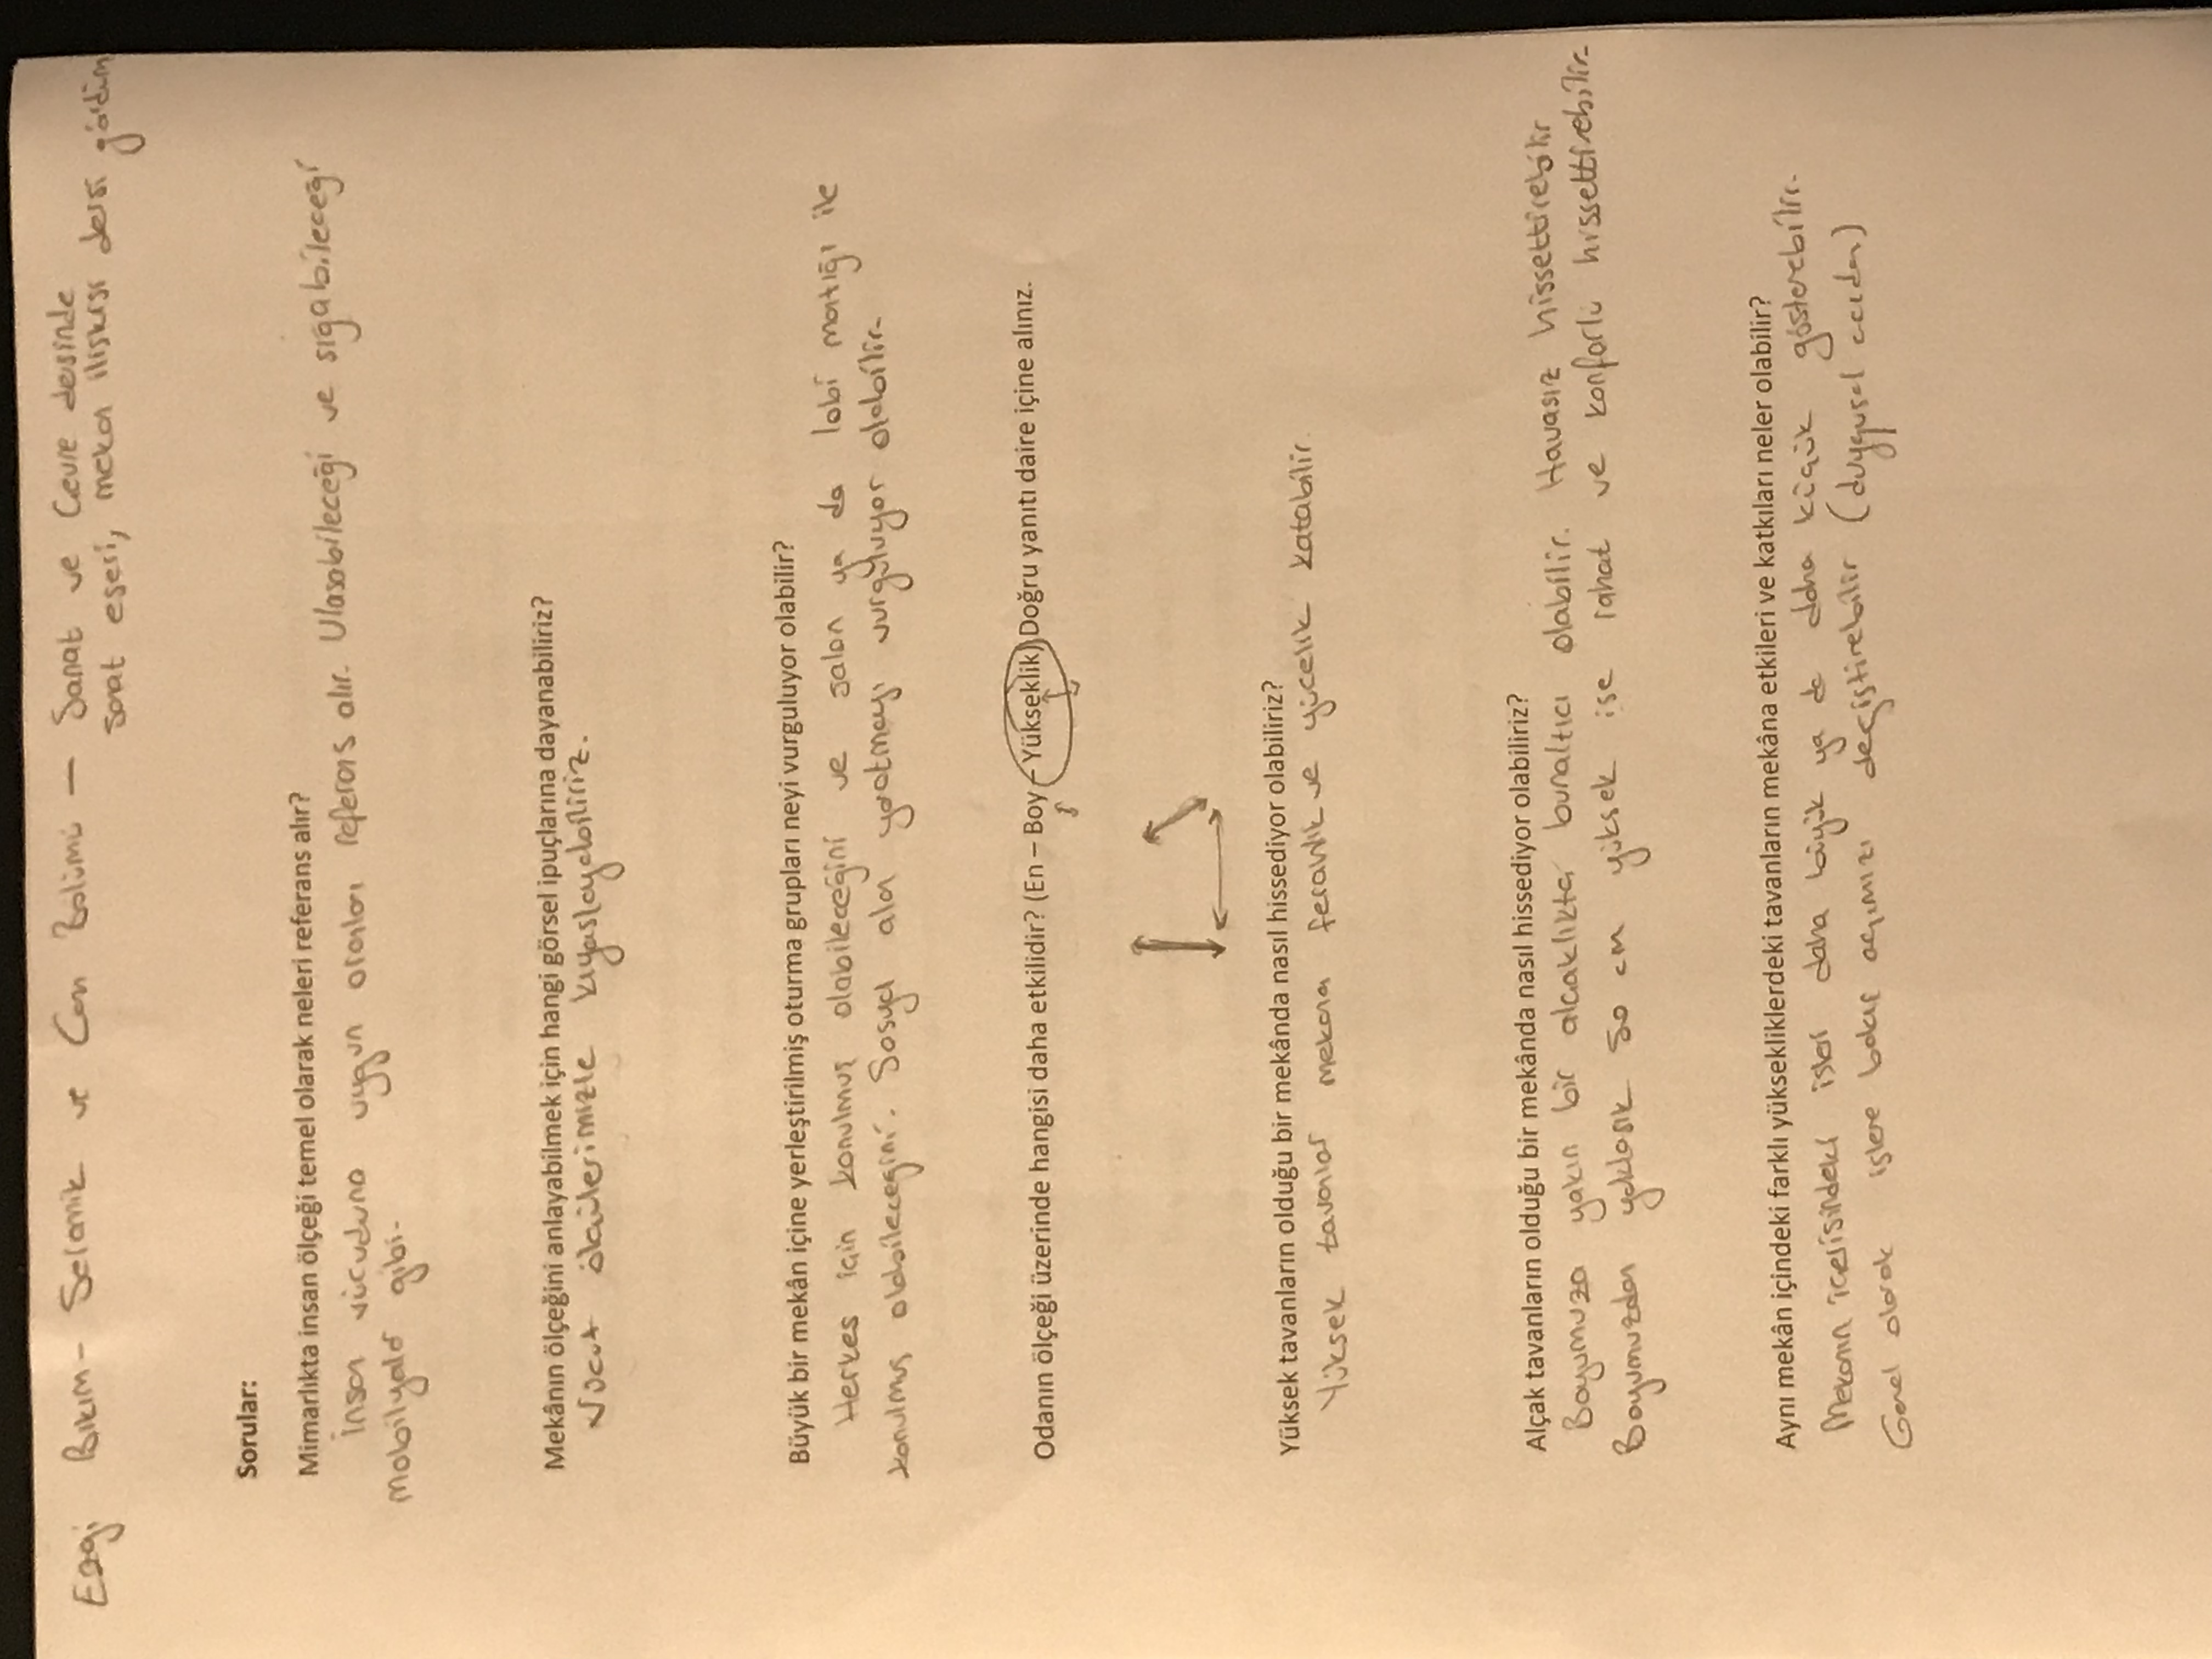 Ezgi Bıkım - Selamik ve Cam Bölümü — Sanat ve Çevre dersinde
sanat eseri, mekan ilişkisi dersi gördüm
Sorular:
Mimarlıkta insan ölçeği temel olarak neleri referans alır?
İnsan vücuduna uygun oranları referans alır. Ulaşabileceği ve sığabileceği
mobilyalar gibi.
Mekânın ölçeğini anlayabilmek için hangi görsel ipuçlarına dayanabiliriz?
Vücut ölçülerimizle kıyaslayabiliriz.
Büyük bir mekân içine yerleştirilmiş oturma grupları neyi vurguluyor olabilir?
Herkes için konulmuş olabileceğini ve salon ya da lobi mantığı ile
konulmuş olabileceğini. Sosyal alan yaratmayı vurguluyor olabilir.
Odanın ölçeği üzerinde hangisi daha etkilidir? (En – Boy – Yükseklik) Doğru yanıtı daire içine alınız.
Yüksek tavanların olduğu bir mekânda nasıl hissediyor olabiliriz?
Yüksek tavanlar mekana ferahlık ve yücelik katabilir.
Alçak tavanların olduğu bir mekânda nasıl hissediyor olabiliriz?
Boyumuza yakın bir alçaklıkta, bunaltıcı olabilir. Havasız hissettirebilir
Boyumuzdan yaklaşık 50 cm yüksek ise rahat ve konforlu hissettirebilir.
Aynı mekân içindeki farklı yüksekliklerdeki tavanların mekâna etkileri ve katkıları neler olabilir?
Mekanın içerisindeki işler daha büyük ya da daha küçük gösterebilir.
Genel olarak işlere bakış açımızı değiştirebilir (duygusal açıdan)